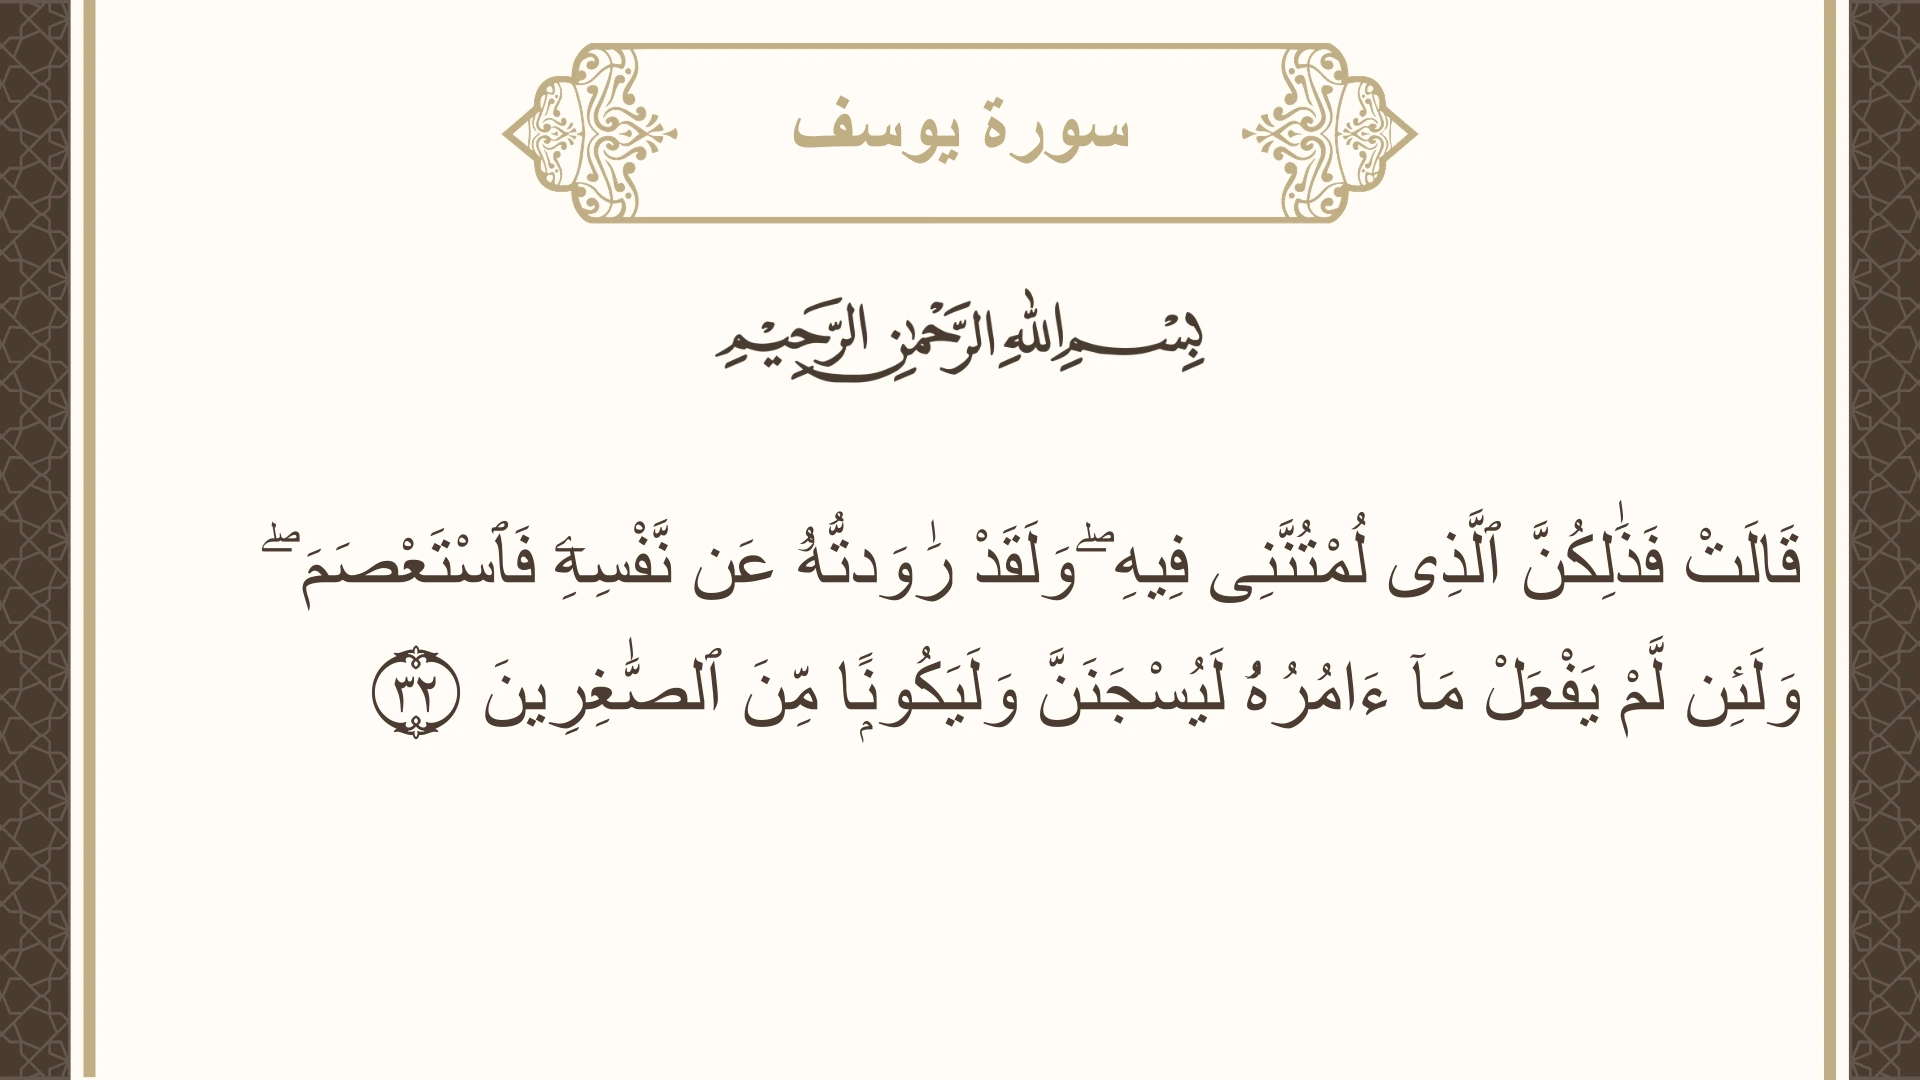 سورة يوسف
بِسْمِ اللهِ الرَّحْمٰنِ الرَّحِيْمِ
قَالَتْ فَذَٰلِكُنَّ ٱلَّذِى لُمْتُنَّنِى فِيهِ ۖ وَلَقَدْ رَٰوَدتُّهُۥ عَن نَّفْسِهِۦ فَٱسْتَعْصَمَ ۖ
وَلَئِن لَّمْ يَفْعَلْ مَآ ءَامُرُهُۥ لَيُسْجَنَنَّ وَلَيَكُونًۭا مِّنَ ٱلصَّٰغِرِينَ ٣٢